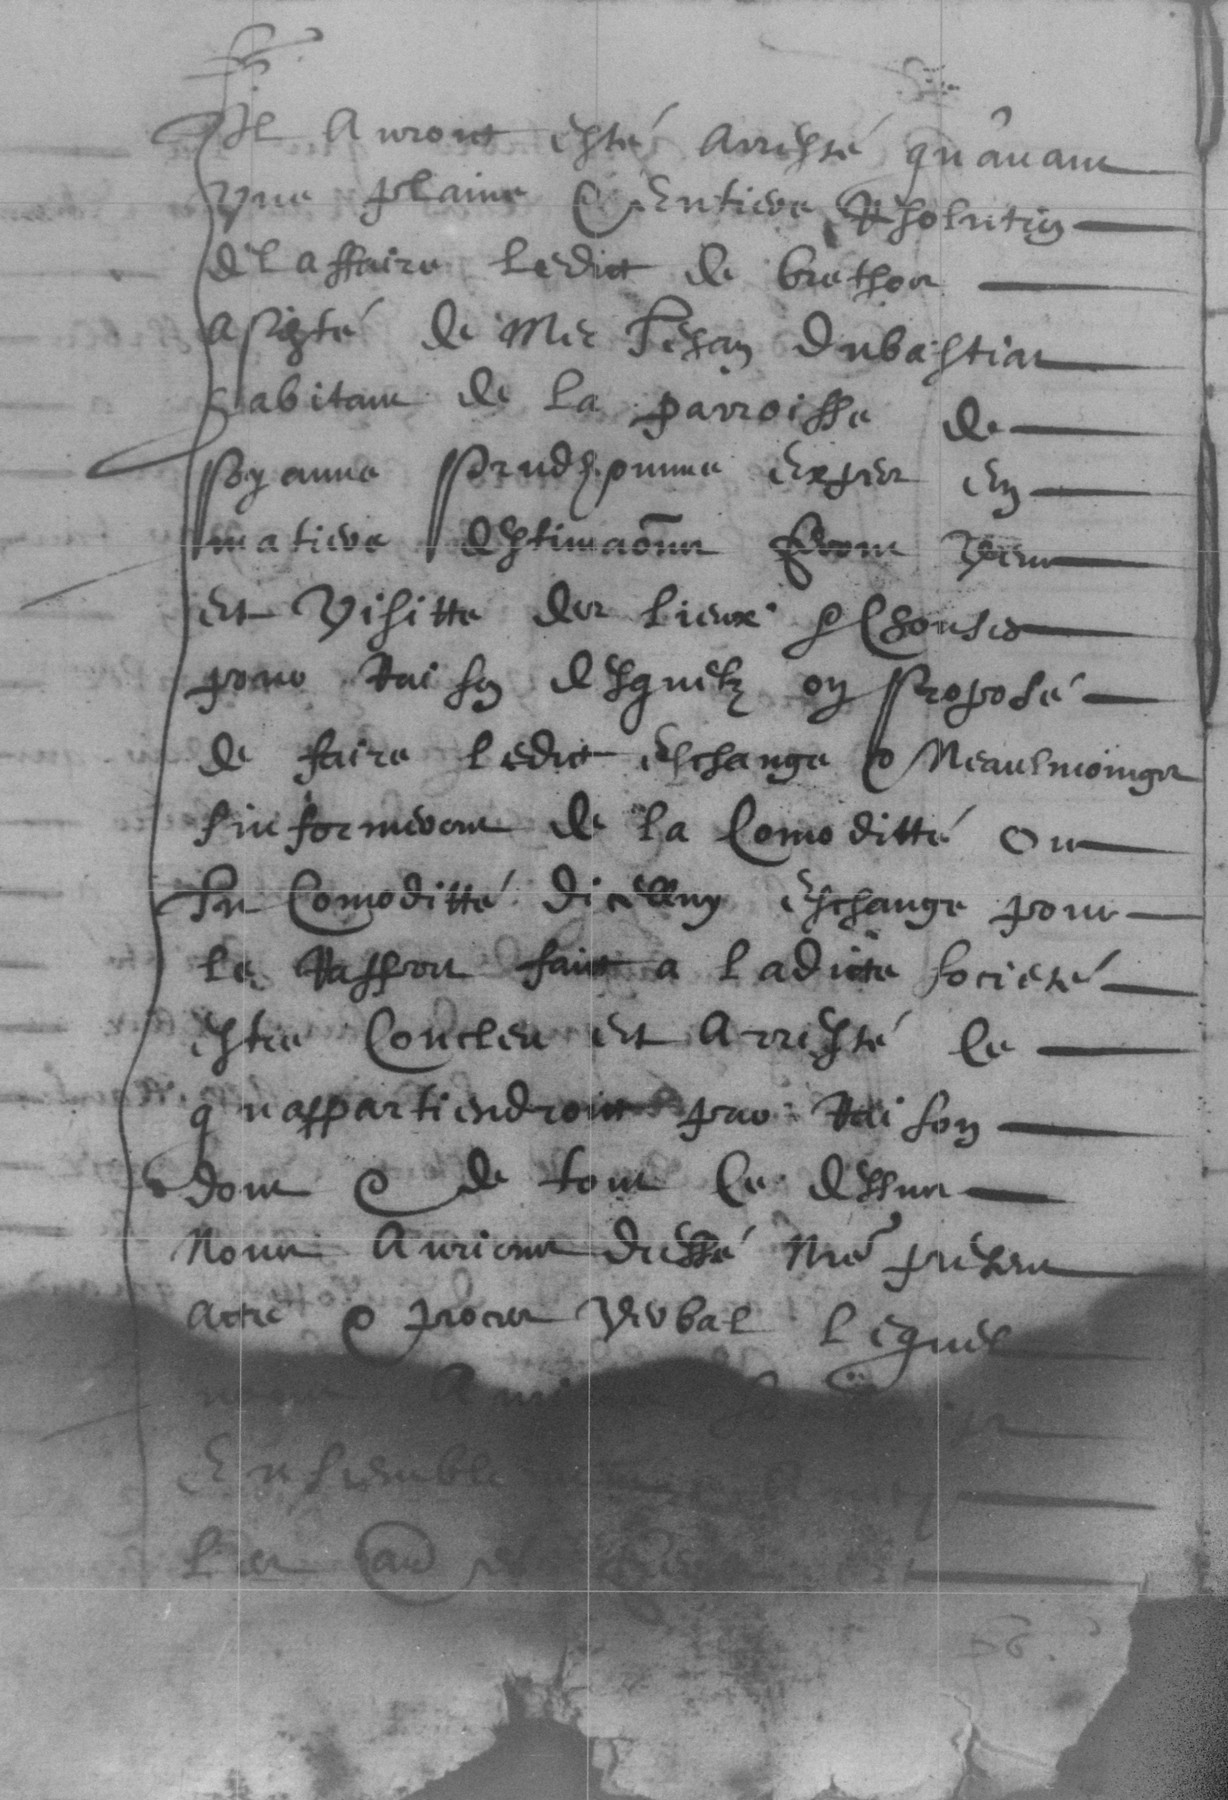 Il auront esté arresté qu'auant
Une plaine & entiere Resolution
de laffaire ledict de brethous
asisté de Me Jehan Dubastiar
habitant de la parroisse de
poyanne prudhomme expert en
matiere destimaõn feront veue
et visitte des lieux & chouses
pour Raison desquelz on propose
de faire ledict eschange & Neaulmoingz
sinformeront de la Comoditté ou
In Comoditté dicelluy eschange pour
le Rapport faict a ladicte societé
estre Concleu et arresté ce
quappartiendront par Raison
dont & de tout ce dessus
Nous aurions dressé nre present
acte & proces verbal lequel
Ensemble